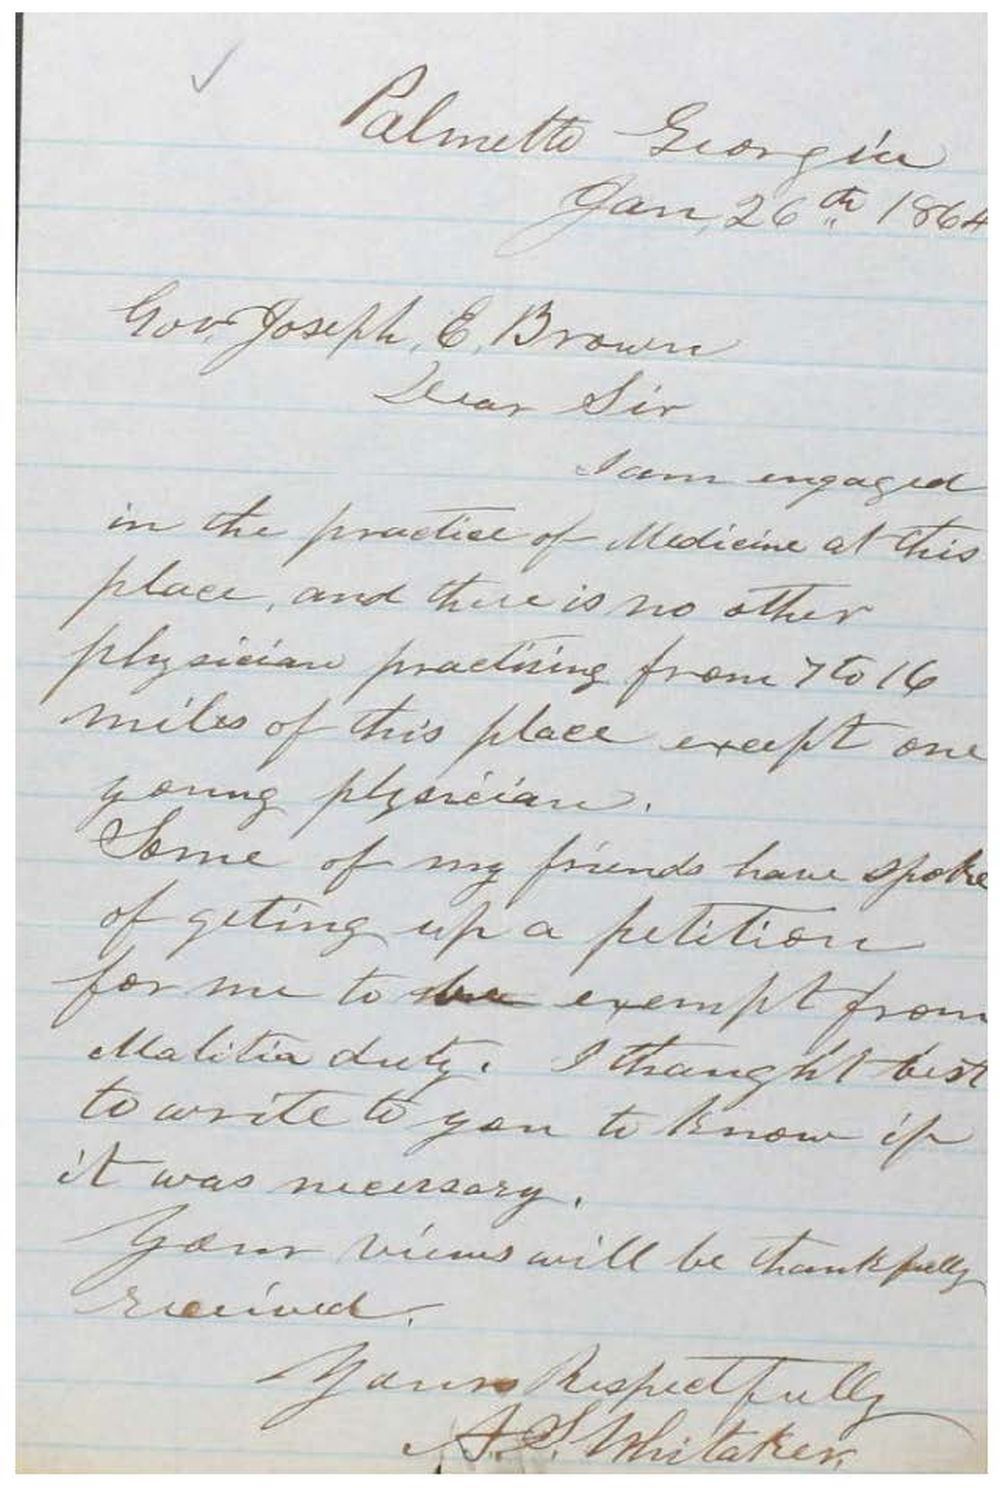 Palmetto Georgia
Jan, 26th 1864
Gov. Joseph, E, Brown
Dear Sir
I am engaged
in the practice of Medicine at this
place, and there is no other
physician practising from 7 to 16
miles of this place except one
young physician.
Some of my friends have spoke
of geting up a petition
for me to exempt from
Malitia duty. I thought best
to write to you to know if
it was necessary.
Your views will be thankfully
received.
Yours Respectfully
A. S. Whitaker.